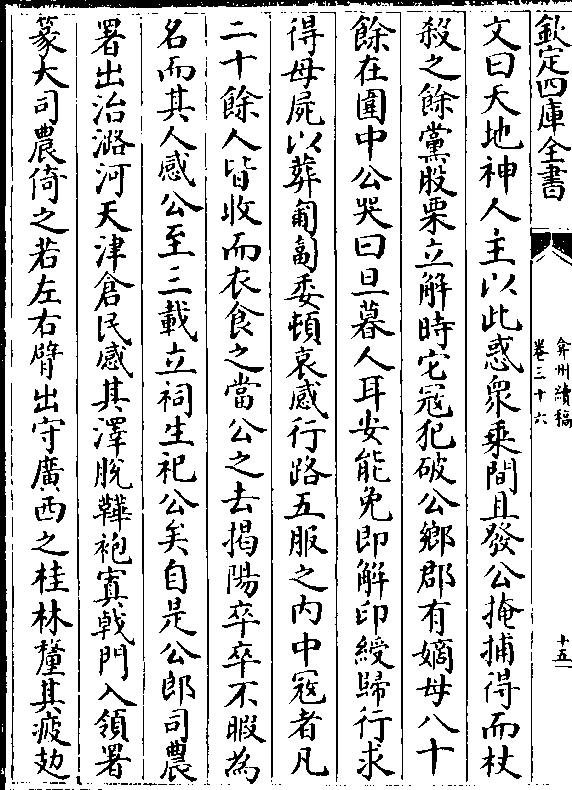 欽定四庫全書
弇州續稿
卷三十六
十五
文曰天地神人主以此惑衆乗間且發公掩捕得而杖
殺之餘黨股栗立解時宅冦犯破公鄉郡有嫡母八十
餘在圍中公哭曰旦暮人耳安能免即解印綬歸行求
得母屍以葬匍匐委頓哀感行路五服之内中冦者凡
二十餘人皆收而衣食之當公之去揭陽卒卒不暇為
名而其人感公至三載立祠生祀公矣自是公郎司農
署出治潞河天津倉民感其澤脫鞾袍寘戟門入領署
篆大司農倚之若左右臂出守廣西之桂林釐其疲劾